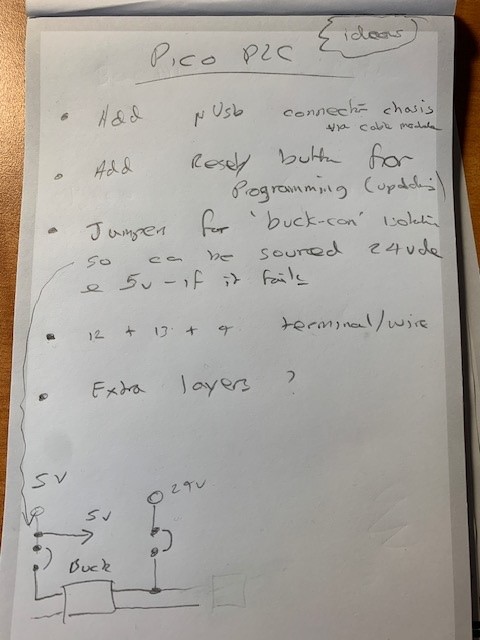 ideas
Pico PLC
• Add µUsb connect= chasis
via cable module
• Add Reset/ button for
Programming (updates)
• Jumper for 'buck-con' isolation
so can be sourced 24vdc
e 5v - if it fails
• 12 + 13 + 9 terminal/wire
• Extra layers ?
5V
24V
5V
Buck